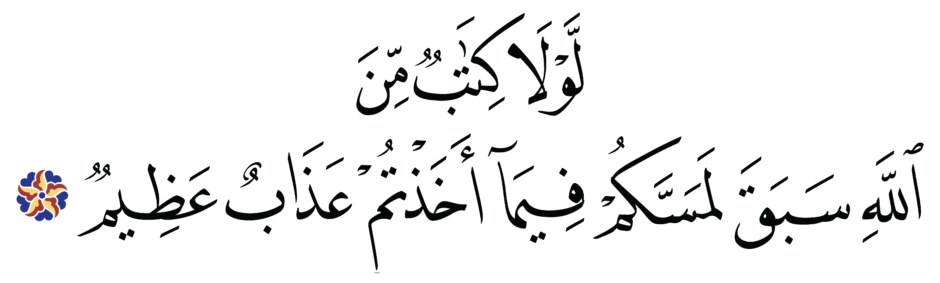 لَّوْلَا كِتَٰبٌ مِّنَ
ٱللَّهِ سَبَقَ لَمَسَّكُمْ فِيمَآ أَخَذْتُمْ عَذَابٌ عَظِيمٌ